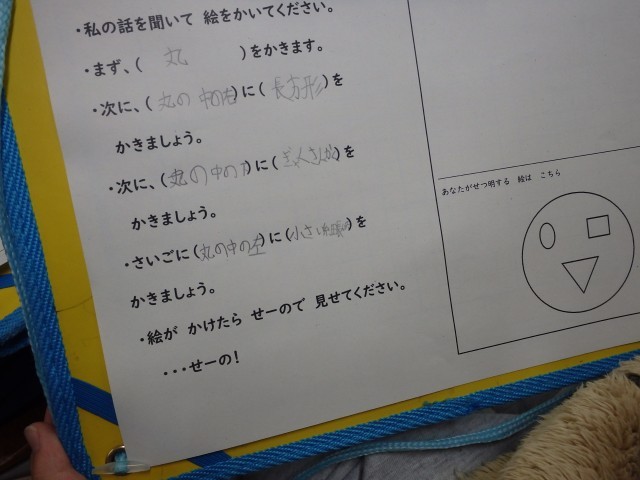 ・私の話を聞いて 絵をかいてください。
・まず、( 丸 )をかきます。
・次に、(丸の 中の右)に(長方形)を
かきましょう。
・次に、(丸の中の下)に(三角さんかく)を
かきましょう。
・さいごに(丸の中の左)に(小さい)を
かきましょう。
・絵が かけたら せーので 見せてください。
・・・せーの!
あなたがせつ明する 絵は こちら